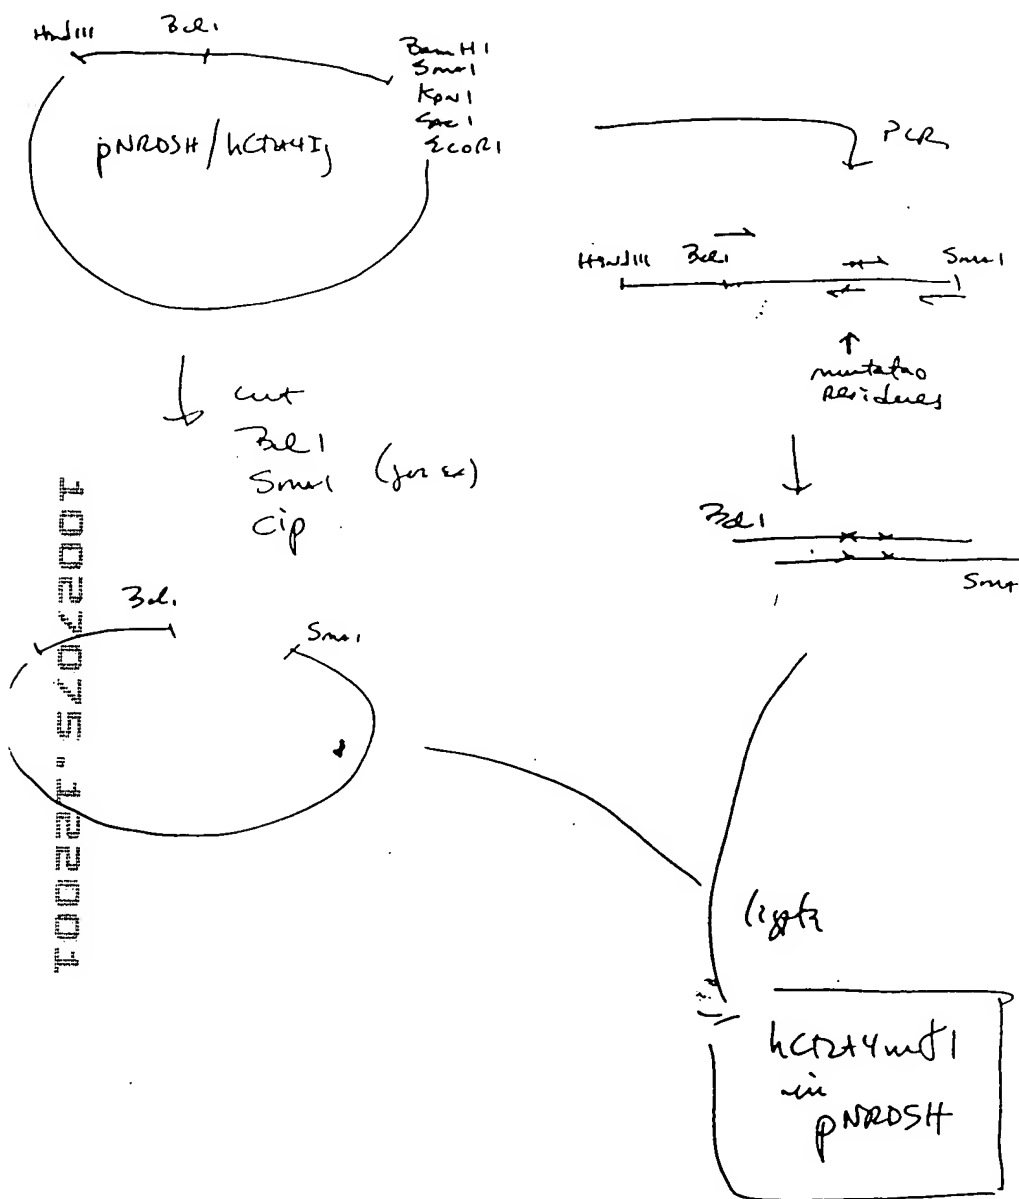 HindIII Bcl1
BamH1
Sma1
Kpn1
Sac1
EcoR1
pNRDSH/hCTLA4Ig
PCR
HindIII Bcl1 Sma1
mutate
residues
cut
Bcl1
Sma1 (for ex)
Cip
Bcl1
Sma
Bcl1
Sma1
10027075.122001
ligate
hCTLA4mt1
in
pNRDSH